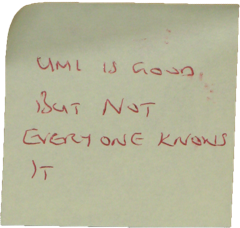 UML IS GOOD,
BUT NOT
EVERYONE KNOWS
IT